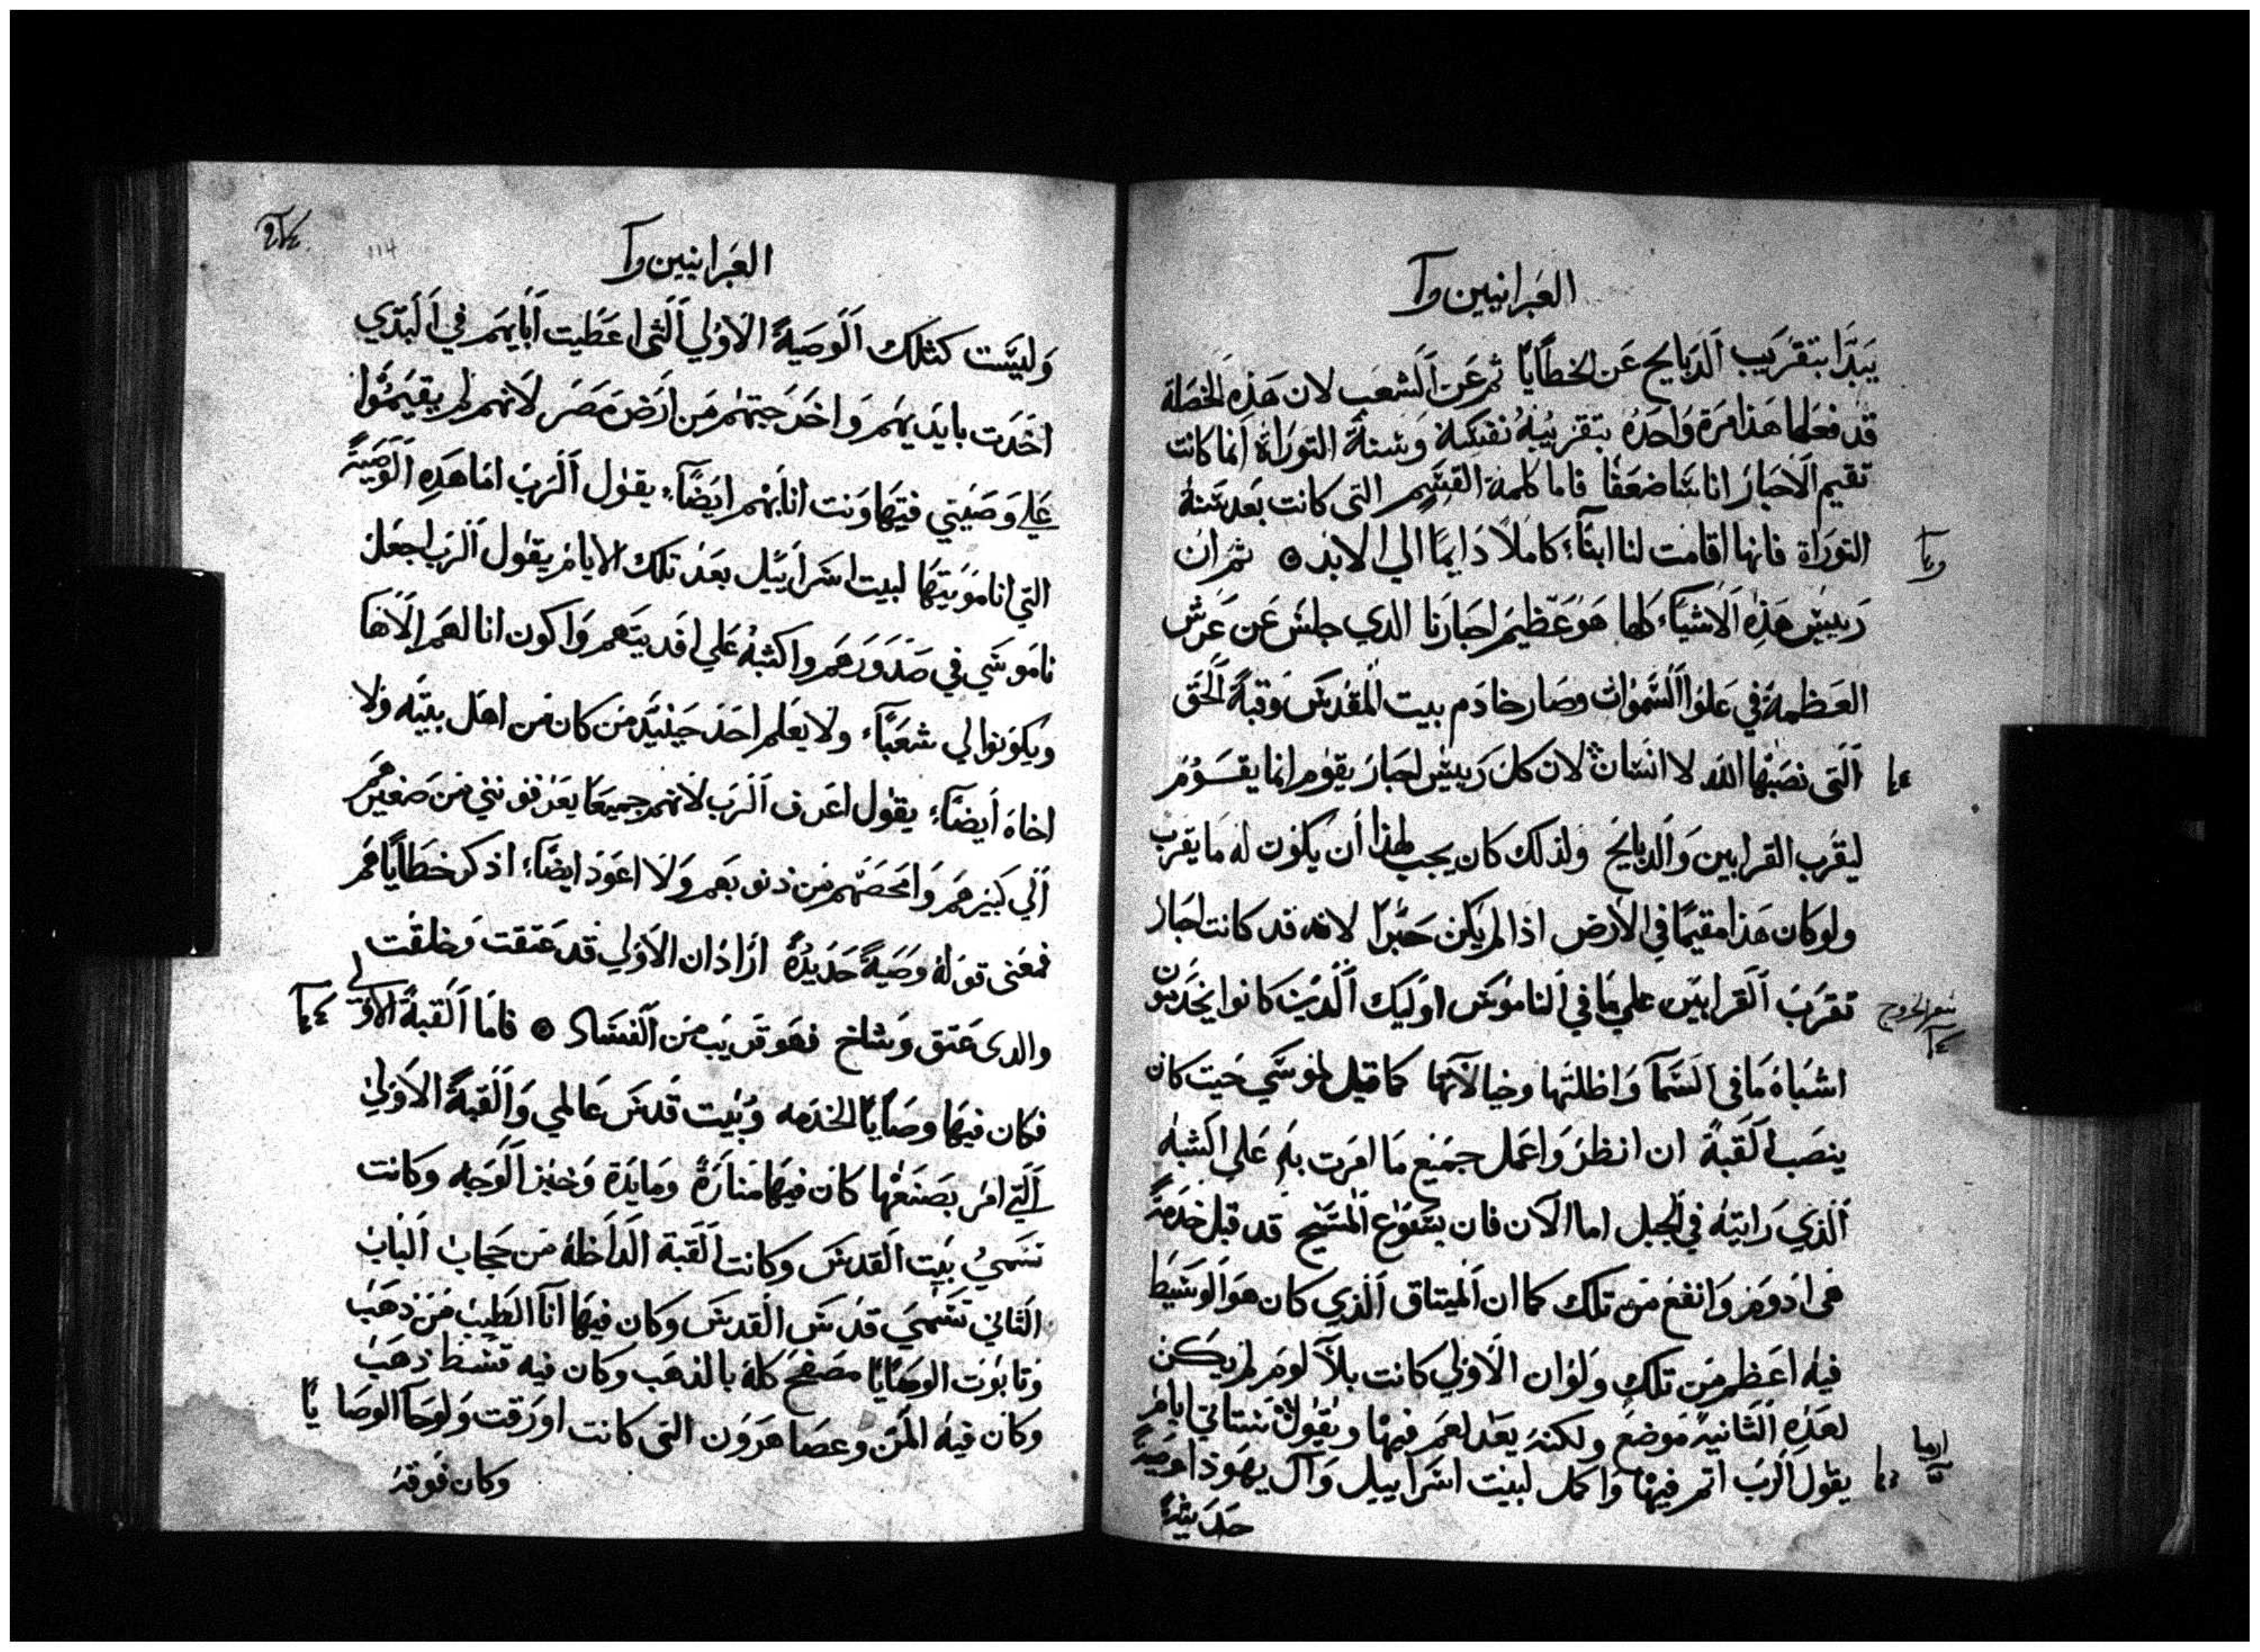 العبرانيين
يبدا بتقريب الذبايح عن الخطايا ثم عن الشعب لان هذه الخصلة
قد فعلها هذا مرة واحدة بتقريبه نفسه وسنة التوراة انما كانت
تقيم الاحبار اناسا ضعفا فاما كلمة القسم التى كانت بعد سنة
التوراة فانها اقامت لنا ابناً كاملاً دايما الي الابد ۞ ثم ان
رييس هذه الاشياء كلها هو عظيم احبارنا الدي جلس عن عرش
العظمة في علو السموات وصار خادم بيت المقدس وقبة الحق
التى نصبها الله لا انسان لان كل رييس احبار يقوم انما يقوم
ليقرب القرابين والدبايح ولذلك كان يجب لهذا أن يكون له ما يقرب
ولو كان هذا مقيما في الارض اذا لم يكن حبرا لانه قد كانت احبار
تقرب القرابين علي ما في الناموس اوليك الدين كانوا يخدمون
سفر الخروج
اشباه ما فى السما واظلتها وخيالاتها كما قيل لموسي حيت كان
ينصب القبة ان انظر واعمل جميع ما امرت به علي الشبه
الذي رايته في الجبل اما الآن فان يسوع المسيح قد قبل خدمة
هى ادوم وانفع من تلك كما ان الميتاق الذي كان هو الوسيط
فيه اعظم من تلك ولو ان الاولي كانت بلا لوم لم يكن
لهذه الثانية موضع ولكنه يعدلهم فيها ويقول ستاتي ايام
يقول الرب اتم فيها واكمل لبيت اسراييل وآل يهوذا وصية
ارميا
حديثة
العبرانيين
وليست كتلك الوصية الاولي التى اعطيت آبايهم في البدي
اخدت بايديهم واخرجتهم من ارض مصر لانهم لم يقيموا
علي وصيتي فتهاونت انا بهم ايضاً يقول الرب اما هده الوصية
التي انا موتيها لبيت اسراييل بعد تلك الايام يقول الرب اجعل
ناموسي في صدورهم واكتبه علي افديتهم واكون انا لهم الاها
ويكونوا لي شعباً ولا يعلم احد حينيد من كان من اهل بيته ولا
اخاه ايضاً يقول اعرف الرب لانهم جميعا يعرفونني من صغيرهم
الي كبيرهم وامحصهم من دنوبهم ولا اعود ايضاً اذكر خطاياهم
فمعنى قوله وصية حديدة ازاد ان الاولي قد عتقت وخلقت
والدى عتق وشاخ فهو قريب من الفساد ۞ فاما القبة الاولي
فكان فيها وصايا الخدمه وبيت قدس عالمي والقبة الاولي
التي امر بصنعها كان فيها منارة ومايدة وخبز الوجه وكانت
تسمي بيت القدس وكانت القبة الداخلة من حجاب الباب
التاني تسمي قدس القدس وكان فيها انآ الطيب من ذهب
وتابوت الوصايا مصفح كله بالذهب وكان فيه قسط ذهب
وكان فيه المن وعصا هرون التى كانت اورقت ولوحا الوصايا
وكان فوقه